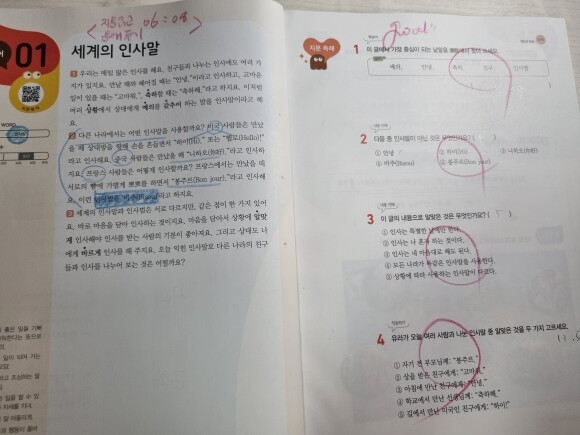 지문읽고 06:08
문제풀이
01
세계의 인사말
1 우리는 매일 많은 인사를 해요. 친구들과 나누는 인사에도 여러 가
지가 있지요. 만날 때와 헤어질 때는 "안녕."이라고 인사하고, 고마운
일이 있을 때는 "고마워.", 축하할 때는 "축하해."라고 하지요. 이처럼
여러 상황에서 상대에게 예의를 갖추어 하는 말을 인사말이라고 해
요.
2 다른 나라에서는 어떤 인사말을 사용할까요? 미국 사람들은 만났
을 때 손을 흔들면서 "하이(Hi)." 또는 "헬로(Hello)."
라고 인사해요. 중국 사람들은 만났을 때 "니하오(你好)."라고 인사하
지요. 프랑스 사람들은 어떻게 인사할까요? 프랑스에서는 만났을 때
서로의 뺨에 가볍게 뽀뽀를 하면서 "봉주르(Bon jour)."라고 인사해
요. 이런 인사법은 비주(Bisou)라고 하지요.
3 세계의 인사말과 인사법은 서로 다르지만, 같은 점이 한 가지 있어
요. 바로 마음을 담아 인사하는 것이지요. 마음을 담아서 상황에 알맞
게 인사해야 인사를 받는 사람의 기분이 좋아지요. 그리고 상대도 나
에게 바르게 인사를 해 주지요. 오늘 익힌 인사말로 다른 나라의 친구
들과 인사를 나누어 보는 것은 어떨까요?
WORD
지문 독해
Good
1 이 글에서 가장 중심이 되는 낱말을 찾아 쓰세요.
예의, 안녕, 축하, 친구, 인사말
2 다음 중 인사말이 아닌 것은 무엇인가요?
① 안녕 ② 하이(Hi) ③ 니하오(你好)
④ 비주(Bisou) ⑤ 봉주르(Bon jour)
3 이 글의 내용으로 알맞은 것은 무엇인가요? ( 5 )
① 인사는 특별한 날에만 한다.
② 인사는 나 혼자 하는 것이다.
③ 인사는 내 마음대로 해도 된다.
④ 모든 나라가 똑같은 인사말을 사용한다.
⑤ 상황에 따라 사용하는 인사말이 다르다.
4 유리가 오늘 여러 사람과 나눈 인사말 중 알맞은 것을 두 가지 고르세요.
① 자기 전 부모님께: "봉주르."
② 상을 받은 친구에게: "고마워."
③ 아침에 만난 친구에게: "안녕."
④ 학교에서 만난 선생님께: "축하해."
⑤ 길에서 만난 미국인 친구에게: "하이!"